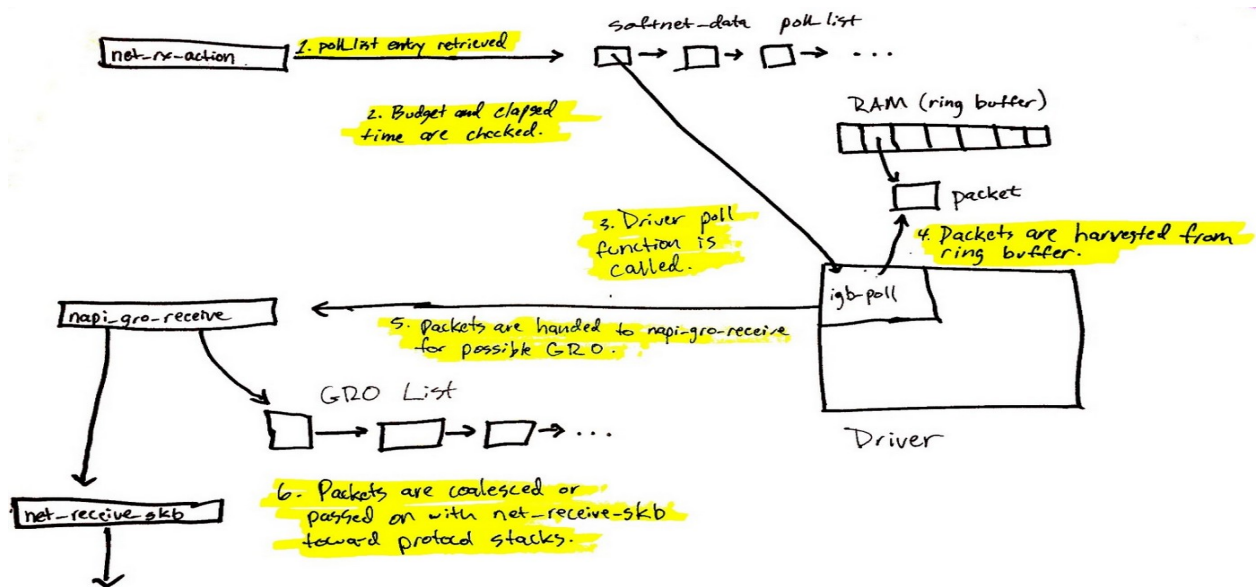 softnet_data poll list
net_rx_action
1. poll list entry retrieved
...
2. Budget and elapsed
time are checked.
RAM (ring buffer)
packet
3. Driver poll
function is
called.
4. Packets are harvested from
ring buffer.
igb_poll
napi_gro_receive
5. Packets are handed to napi-gro-receive
for possible GRO.
GRO List
...
Driver
6. Packets are coalesced or
passed on with net_receive_skb
toward protocol stacks.
net_receive_skb